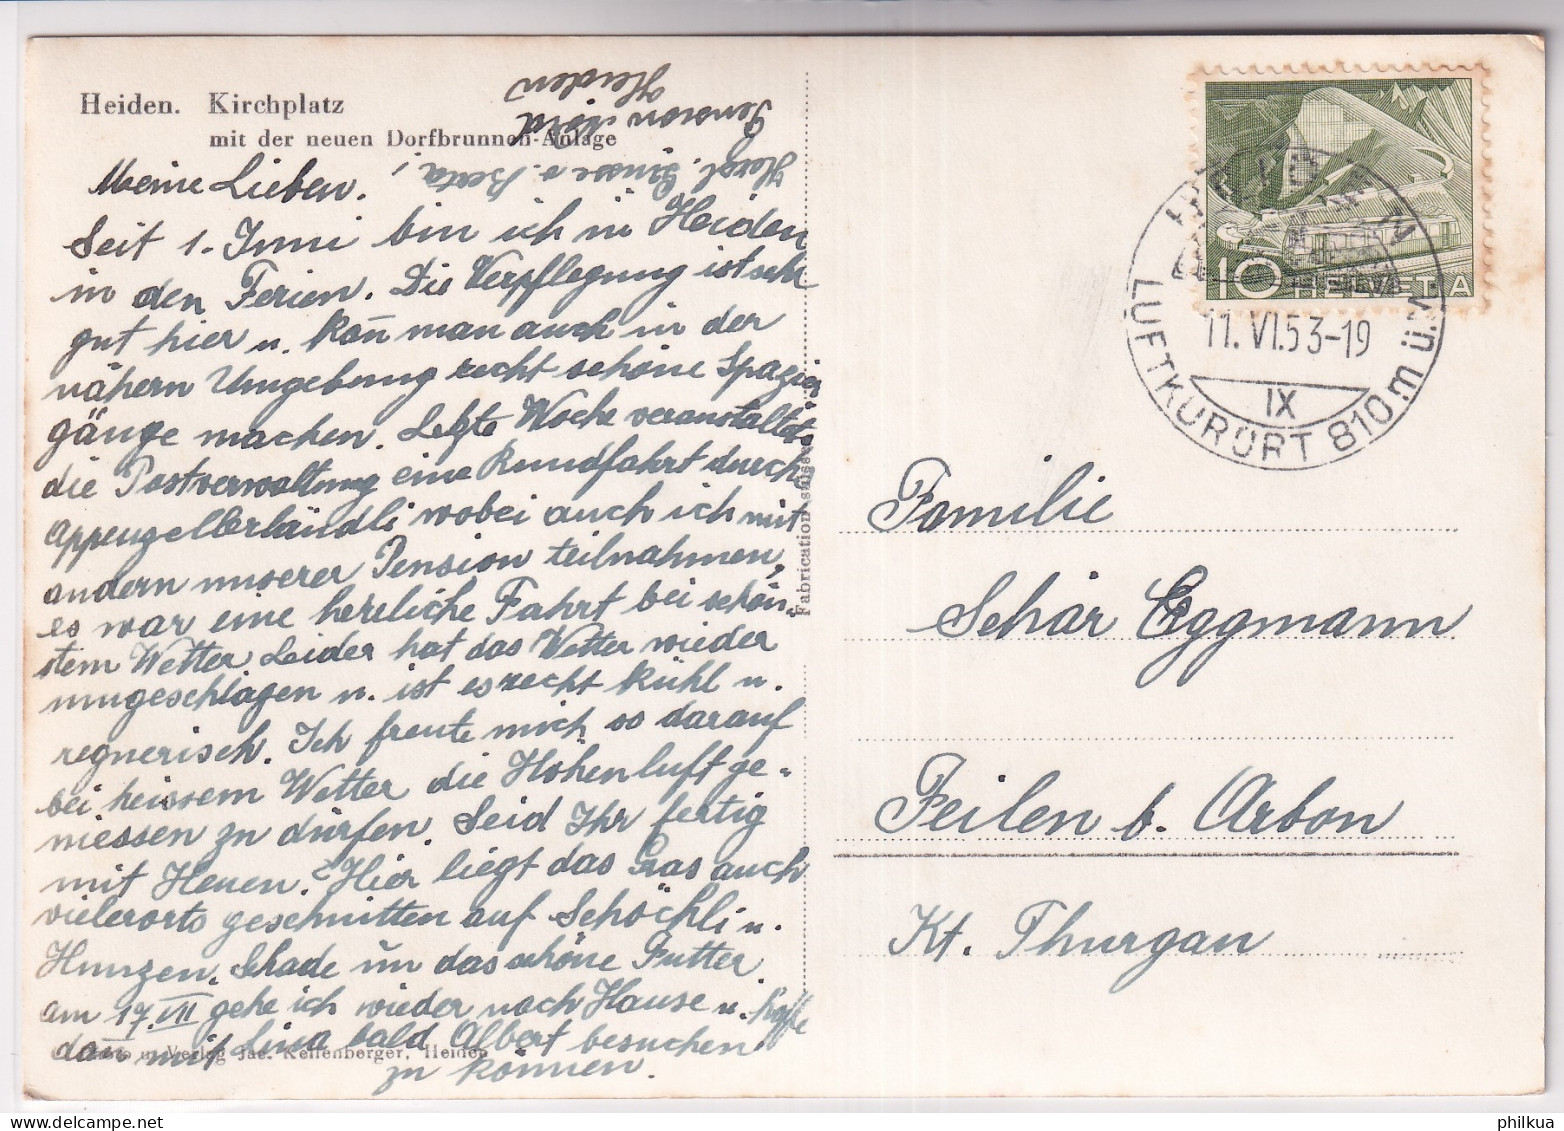 Heiden. Kirchplatz
mit der neuen Dorfbrunnen-Anlage
Meine Lieben.
Seit 1. Juni bin ich in Heiden
in den Ferien. Die Verpflegung ist sehr
gut hier u. kañ man auch in der
nähern Umgebung recht schöne Spazier
gänge machen. Letzte Woche veranstaltete
die Postverwaltung eine Rundfahrt durchs
Appenzellerländli wobei auch ich mit
andern unserer Pension teilnahmen,
es war eine herrliche Fahrt bei schön-
stem Wetter Leider hat das Wetter wieder
umgeschlagen u. ist es recht kühl u.
regnerisch. Ich freute mich so darauf
bei heissem Wetter die Höhenluft ge-
niessen zu dürfen. Seid Ihr fertig
mit Heuen? Hier liegt das Gras auch
vielerorts geschnitten auf Schöchli u.
Hunzen. Schade um das schöne Futter
am 17. VII gehe ich wieder nach Hause u. hoffe
dañ mit Lina bald Albert besuchen
zu können.
Herzl. Grüsse v. Berta
Pension
Heiden
Verlag Jac. Kellenberger, Heiden
Fabrication suisse
10 HELVETIA
HEIDEN
11. VI. 53-19
IX
LUFTKURORT 810 m ü. M.
Familie
Schär Eggmann
Feilen b. Arbon
Kt. Thurgau
philkua